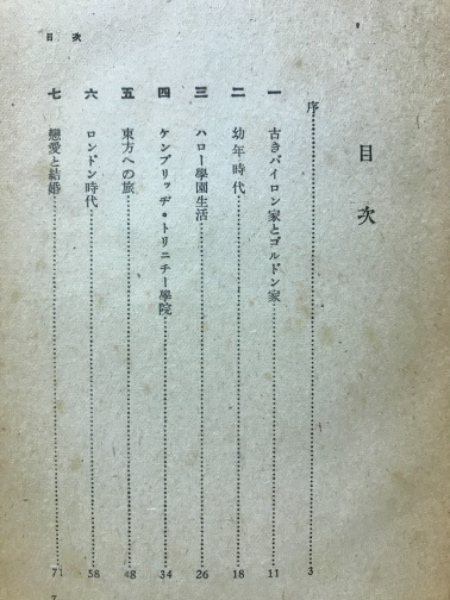 目次
目次
序 3
一 古きバイロン家とゴルドン家 11
二 幼年時代 18
三 ハロー學園生活 26
四 ケンブリッヂ・トリニチー學院 34
五 東方への旅 48
六 ロンドン時代 58
七 戀愛と結婚 71